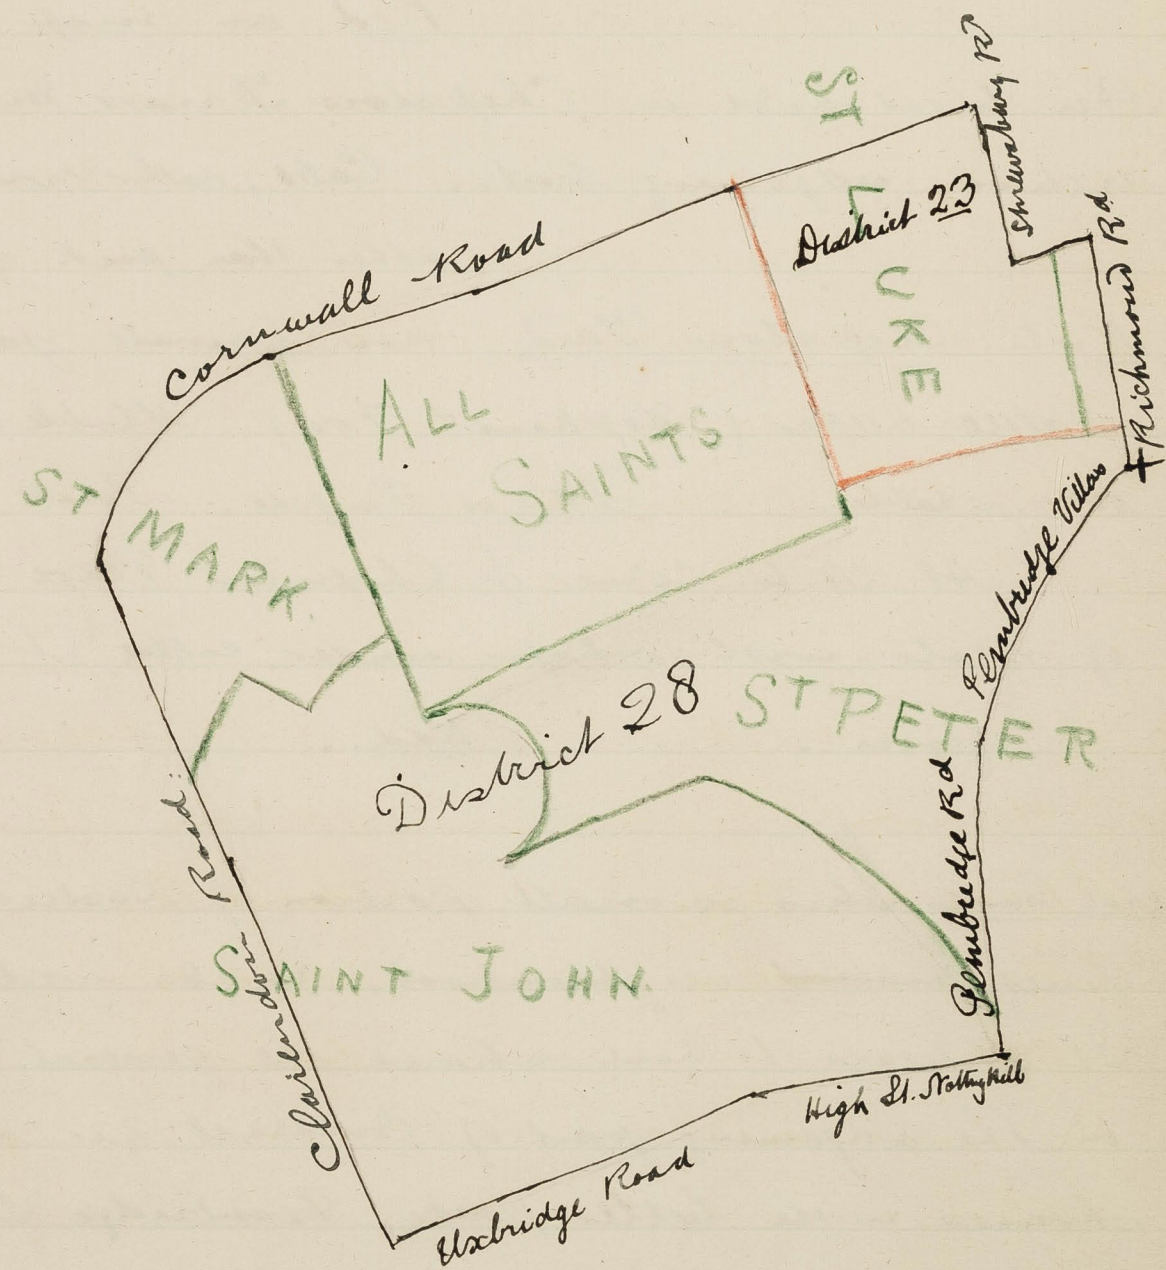 Shrewsbury Rd
ST LUKE
District 23
Richmond Rd
Cornwall Road
ALL
SAINTS
ST MARK
Pembridge Villas
District 28
ST PETER
Pembridge Rd
Clarendon Road
SAINT JOHN
High St. Notting Hill
Uxbridge Road